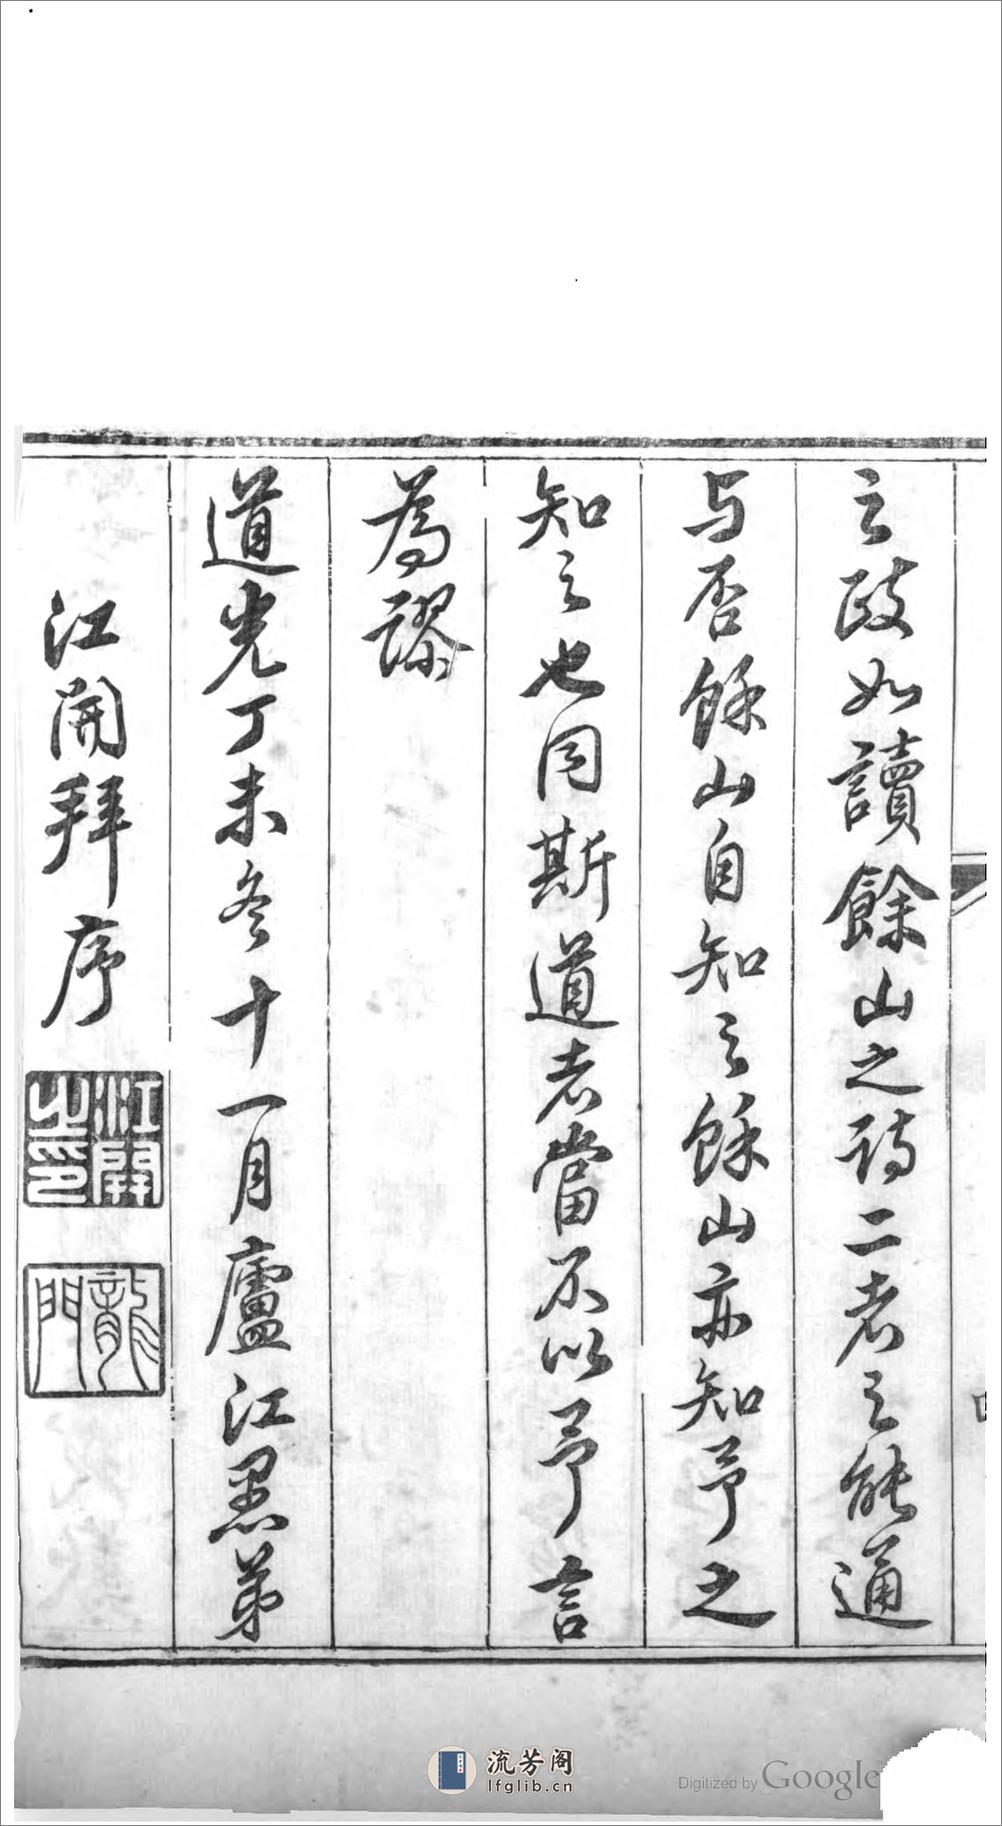 之政如讀餘山之詩二者之能通
与否餘山自知之餘山亦知予之
知之也同斯道者當不以予言
為謬
道光丁未冬十一月廬江愚弟
江開拜序
江開之印
龍門
流芳阁
lfglib.cn
Digitized by Google